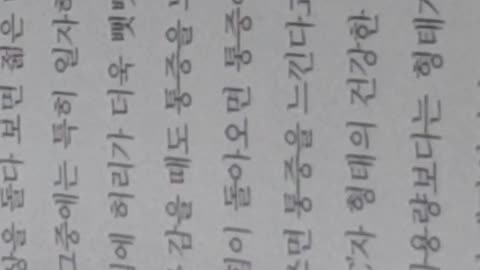 돌다 보면 젊은
그중에는 특히 일자
에 허리가 더욱 뻣
감을 때도 통증을
이 돌아오면 통증
면 통증을 느낀다고
자 형태의 건강한
사용량보다는 형태